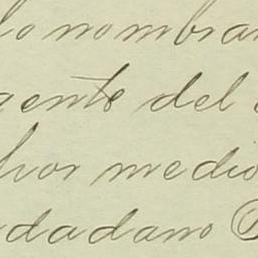 lo nombra
gente del
por medio
udadano